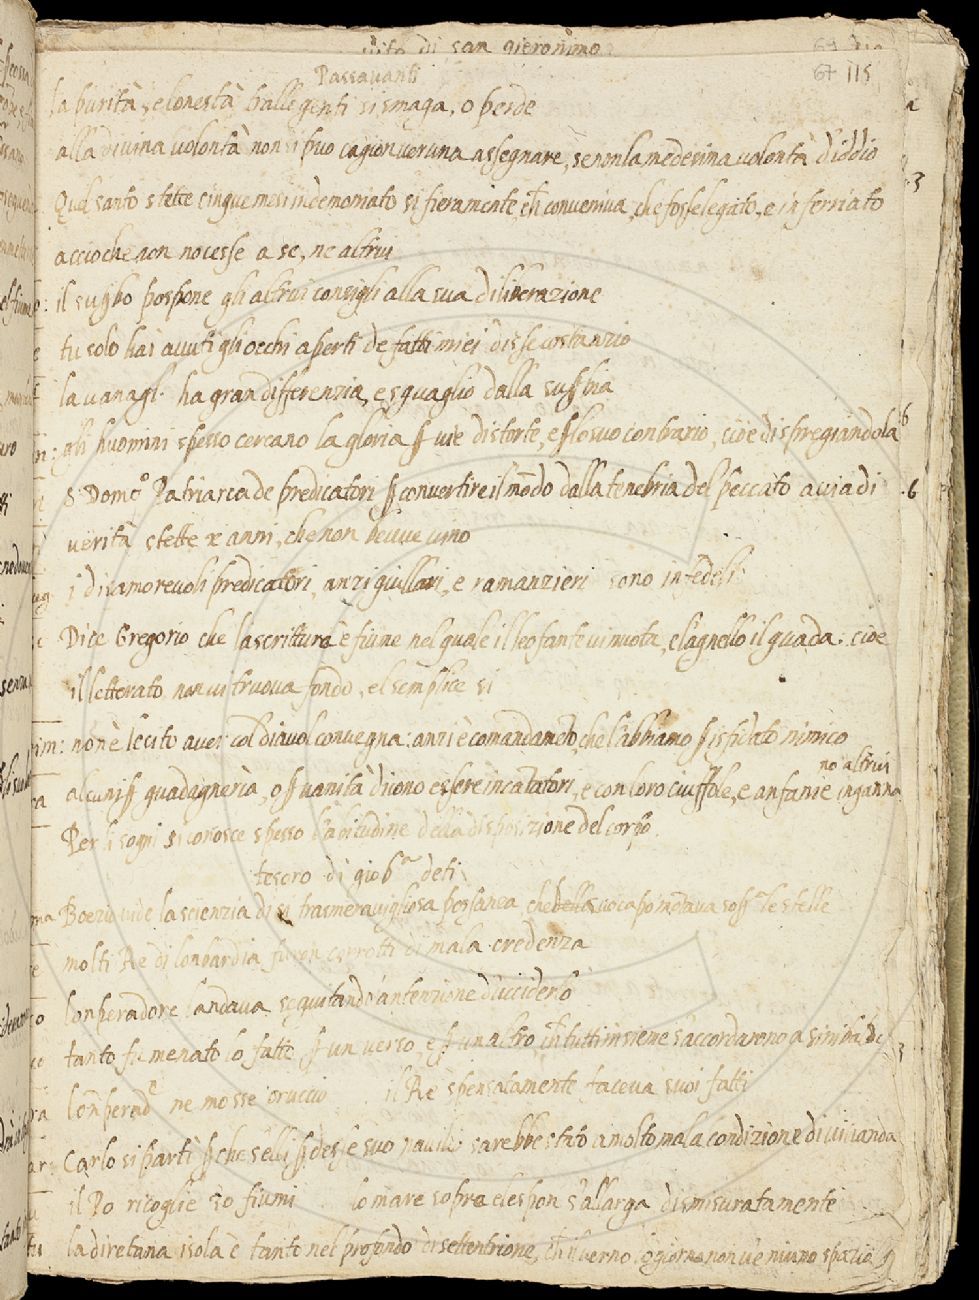 vita di san gieronimo
Passavanti
67 115
la purità, e lonestà balle genti si smaga, o perde
alla divina volontà non si può cagion veruna assegnare, se non la medesima volontà d'iddio
Quel santo stette cinque mesi indemoniato si fieramente, che conveniva, che fosse legato, e inferriato
accioche non nocesse a se, ne altrui
il supbo pospone gli altrui consigli alla sua diliberazione
tu solo hai avuti gli occhi aperti de fatti miei disse costanzio
la vanagl. ha gran differenzia, e sguaglio dalla supbia
gli huomini spesso cercano la gloria p vie distorte, e p lo suo contrario, cioè dispregiandola
S. Domco Patriarca de predicatori p convertire il modo dalla tenebria del peccato a via di
verità stette x anni, che non bevve vino
i disamorevoli predicatori, anzi giullari, e ramanzieri sono infedeli
Dice Gregorio che la scrittura è fiume nel quale il leofante vi nuota, e lagnello il guada: cioè
il letterato non vi truova fondo, el semplice si
non è lecito aver col diavol convegna: anzi è comandamto, che l'abbiamo p isfidato nimico
alcuni p guadagneria, o p vanità dicono essere incatatori, e con loro ciuffole, e anfanie ingannano altrui
Per li sogni si conosce spesso l'abitudine della disposizione del corpo
tesoro di giob.a deti
Boezio vide la scienzia di si trasmeravigliosa possanza, che della capo montava sopra le stelle
molti Re di lonbardia furon corrotti di mala credenza
lonperadore landava seguitando a'ntenzione d'ucciderlo
tanto fu menato lo fatto p un verso, e p un altro, che tutti insieme s'accordarono a
lonperade ne mosse cruccio il Re spensatamente faceva suoi fatti
Carlo si partì p che selli p desse suo sarebbe stato a molto mala condizione di vivanda
il Po ricoglie 30 fiumi lo mare sopra elespon s'allarga dismisuratamente
la diretana isola è tanto nel profondo di settentrione, che il verno i giorni non v'è niuno spazio